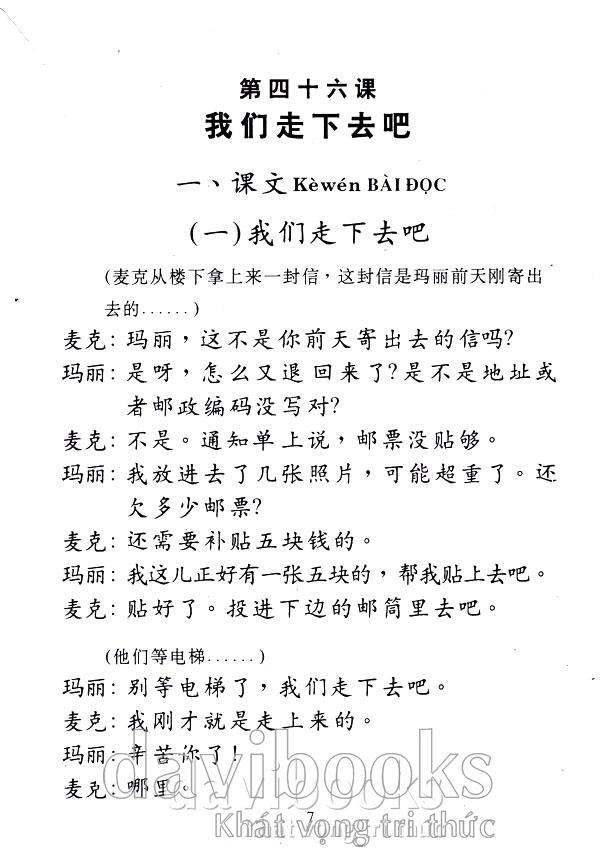 第四十六课
我们走下去吧
一、课文 Kèwén BÀI ĐỌC
(一)我们走下去吧
(麦克从楼下拿上来一封信，这封信是玛丽前天刚寄出
去的......)
麦克: 玛丽，这不是你前天寄出去的信吗?
玛丽: 是呀，怎么又退回来了?是不是地址或
者邮政编码没写对?
麦克: 不是。通知单上说，邮票没贴够。
玛丽: 我放进去了几张照片，可能超重了。还
欠多少邮票?
麦克: 还需要补贴五块钱的。
玛丽: 我这儿正好有一张五块的，帮我贴上去吧。
麦克: 贴好了。投进下边的邮筒里去吧。
(他们等电梯......)
玛丽: 别等电梯了，我们走下去吧。
麦克: 我刚才就是走上来的。
玛丽: 辛苦你了!
麦克: 哪里。
davibooks
Khát vọng tri thức
7